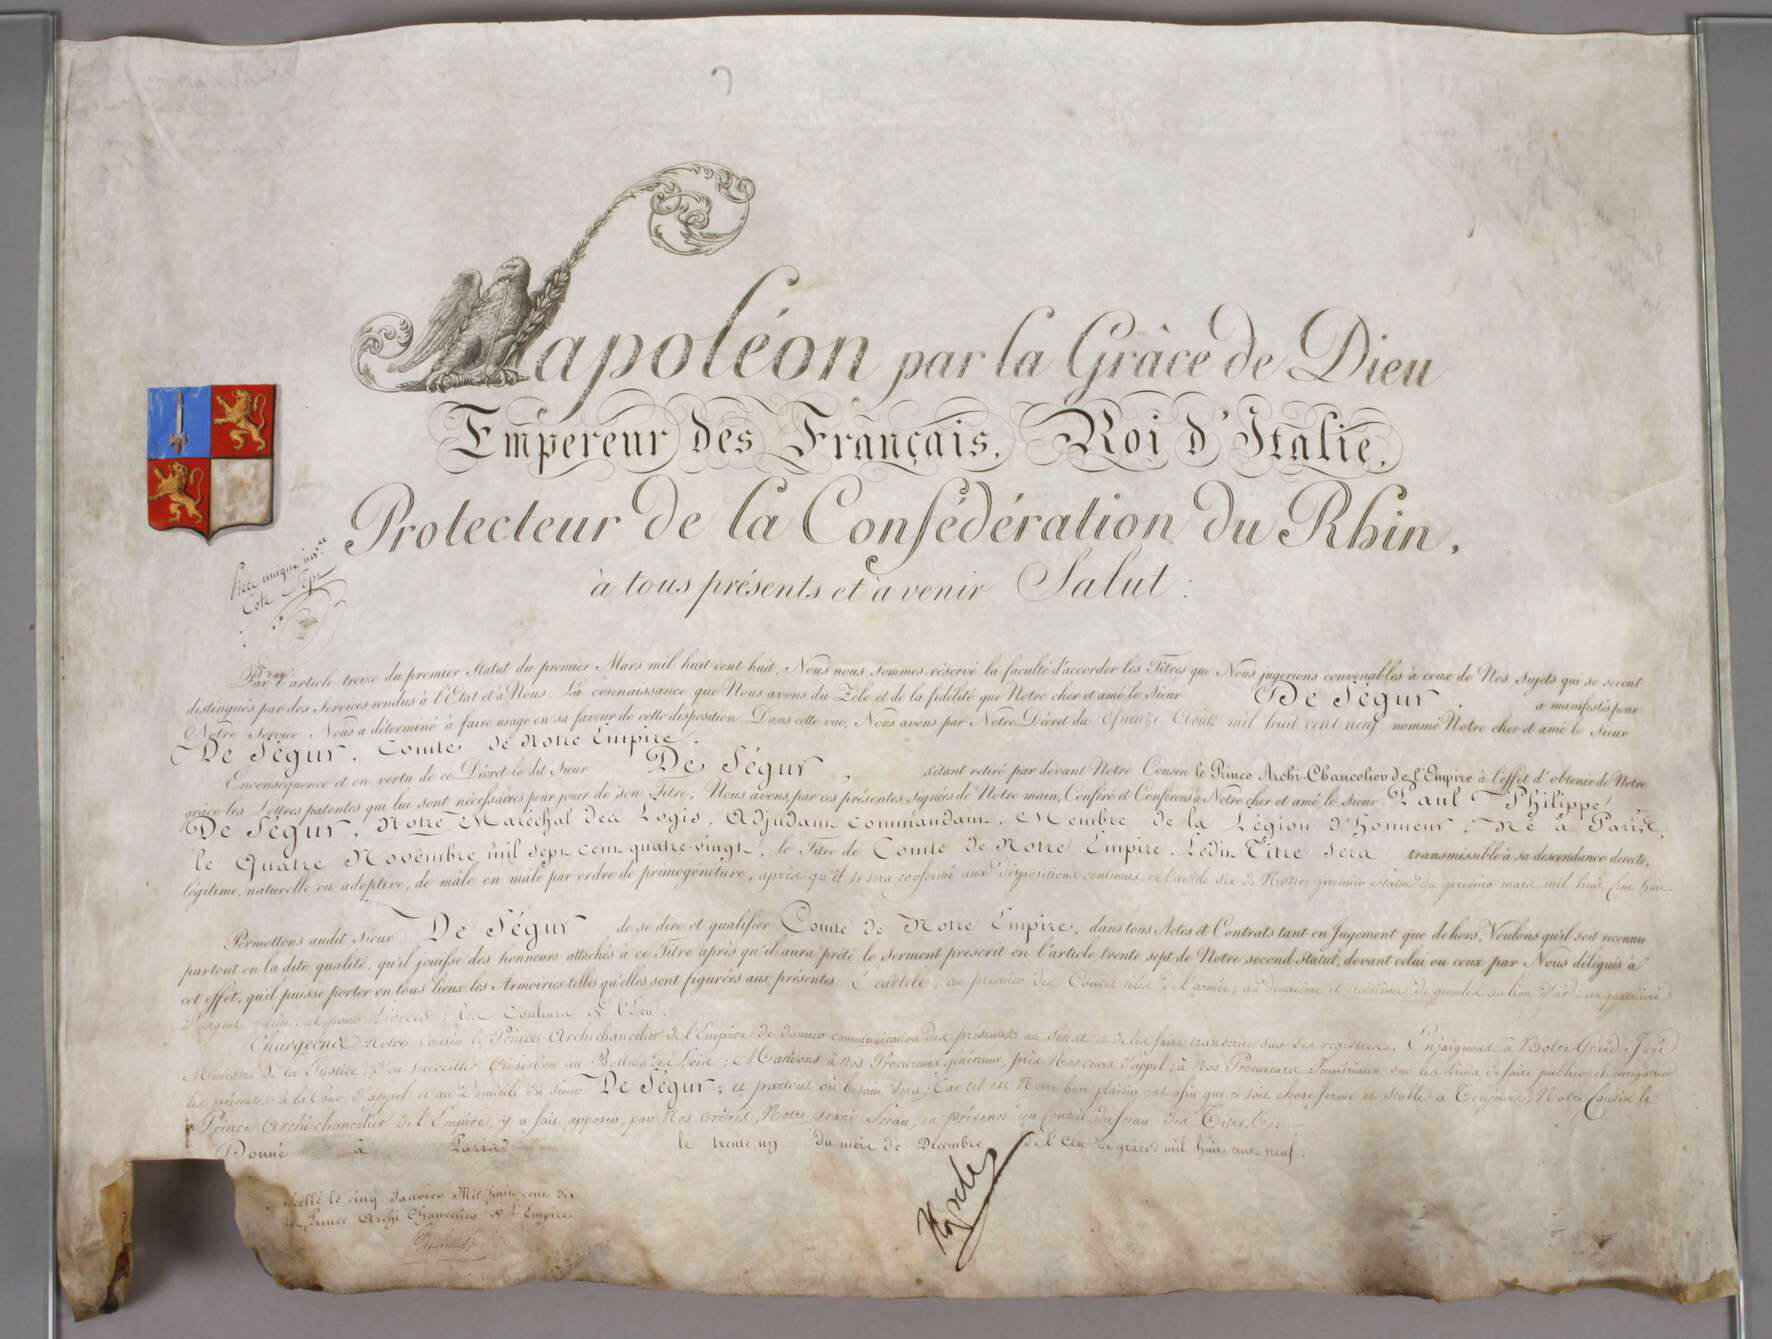 Napoléon par la Grâce de Dieu
Empereur des Français, Roi d'Italie,
Protecteur de la Confédération du Rhin,
à tous présents et à venir Salut :
Pièce unique
Cote Sept
Par l'article treize du premier Statut du premier Mars mil huit cent huit, Nous nous sommes réservé la faculté d'accorder les Titres que Nous jugerions convenables à ceux de Nos Sujets qui se seront
distingués par des Services rendus à l'Etat et à Nous. La connaissance que Nous avons du Zèle et de la fidélité que Notre cher et amé le Sieur De Ségur, a manifestés pour
Notre Service Nous a déterminé à faire usage en sa faveur de cette disposition. Dans cette vue, Nous avons par Notre Décret du Quinze Août mil huit cent neuf, nommé Notre cher et amé le Sieur
De Ségur, Comte de Notre Empire.
En conséquence et en vertu de ce Décret le dit Sieur De Ségur, s'étant retiré par devant Notre Cousin le Prince Archi-Chancelier de l'Empire à l'effet d'obtenir de Notre
grâce les Lettres patentes qui lui sont nécessaires pour jouir de son Titre; Nous avons, par ces présentes signées de Notre main, Conféré et Conférons à Notre cher et amé le Sieur Paul Philippe
De Ségur, Notre Maréchal des Logis, Adjudant commandant, Membre de la Légion d'Honneur, Né à Paris,
le Quatre Novembre mil sept cent quatre-vingt, le Titre de Comte de Notre Empire. Ledit Titre sera transmissible à sa descendance directe,
légitime, naturelle ou adoptive, de mâle en mâle par ordre de primogéniture, après qu'il se sera conformé aux dispositions contenues en l'article six de Notre premier statut du premier mars mil huit cent huit.
Permettons audit Sieur De Ségur, de se dire et qualifier Comte de Notre Empire, dans tous Actes et Contrats tant en Jugement que dehors; Voulons qu'il soit reconnu
partout en la dite qualité, qu'il jouisse des honneurs attachés à ce Titre après qu'il aura prêté le serment prescrit en l'article trente sept de Notre second statut, devant celui ou ceux par Nous délégués à
cet effet, qu'il puisse porter en tous lieux les Armoiries telles qu'elles sont figurées aux présentes Écartelé, au premier des Comtes tirés de l'armée; au deuxième et troisième de gueules au lion d'or; au quatrième
d'argent plein; et pour livrées; les couleurs de l'écu.
Chargeons Notre Cousin le Prince Archichancelier de l'Empire de donner communication des présentes au Sénat et de les faire transcrire sur ses registres. Enjoignons à Notre Grand-Juge
Ministre de la Justice, d'en surveiller l'insertion au Bulletin des Lois; Mandons à Nos Procureurs généraux, près Nos cours d'appel; à Nos Procureurs Impériaux sur les lieux, de faire publier et enregistrer
les présentes à la Cour d'appel et au Domicile du Sieur De Ségur; et partout où besoin sera; Car tel est Notre bon plaisir; et afin que ce soit chose ferme et stable à Toujours, Notre Cousin le
Prince Archichancelier de l'Empire, y a fait apposer, par Nos ordres, Notre grand Sceau, en présence du Conseil du Sceau des Titres.
Donné à Paris le trente un du mois de Décembre de l'an de grâce mil huit cent neuf.
Scellé le cinq Janvier Mil huit cent dix
Le Prince Archi Chancelier de l'Empire.